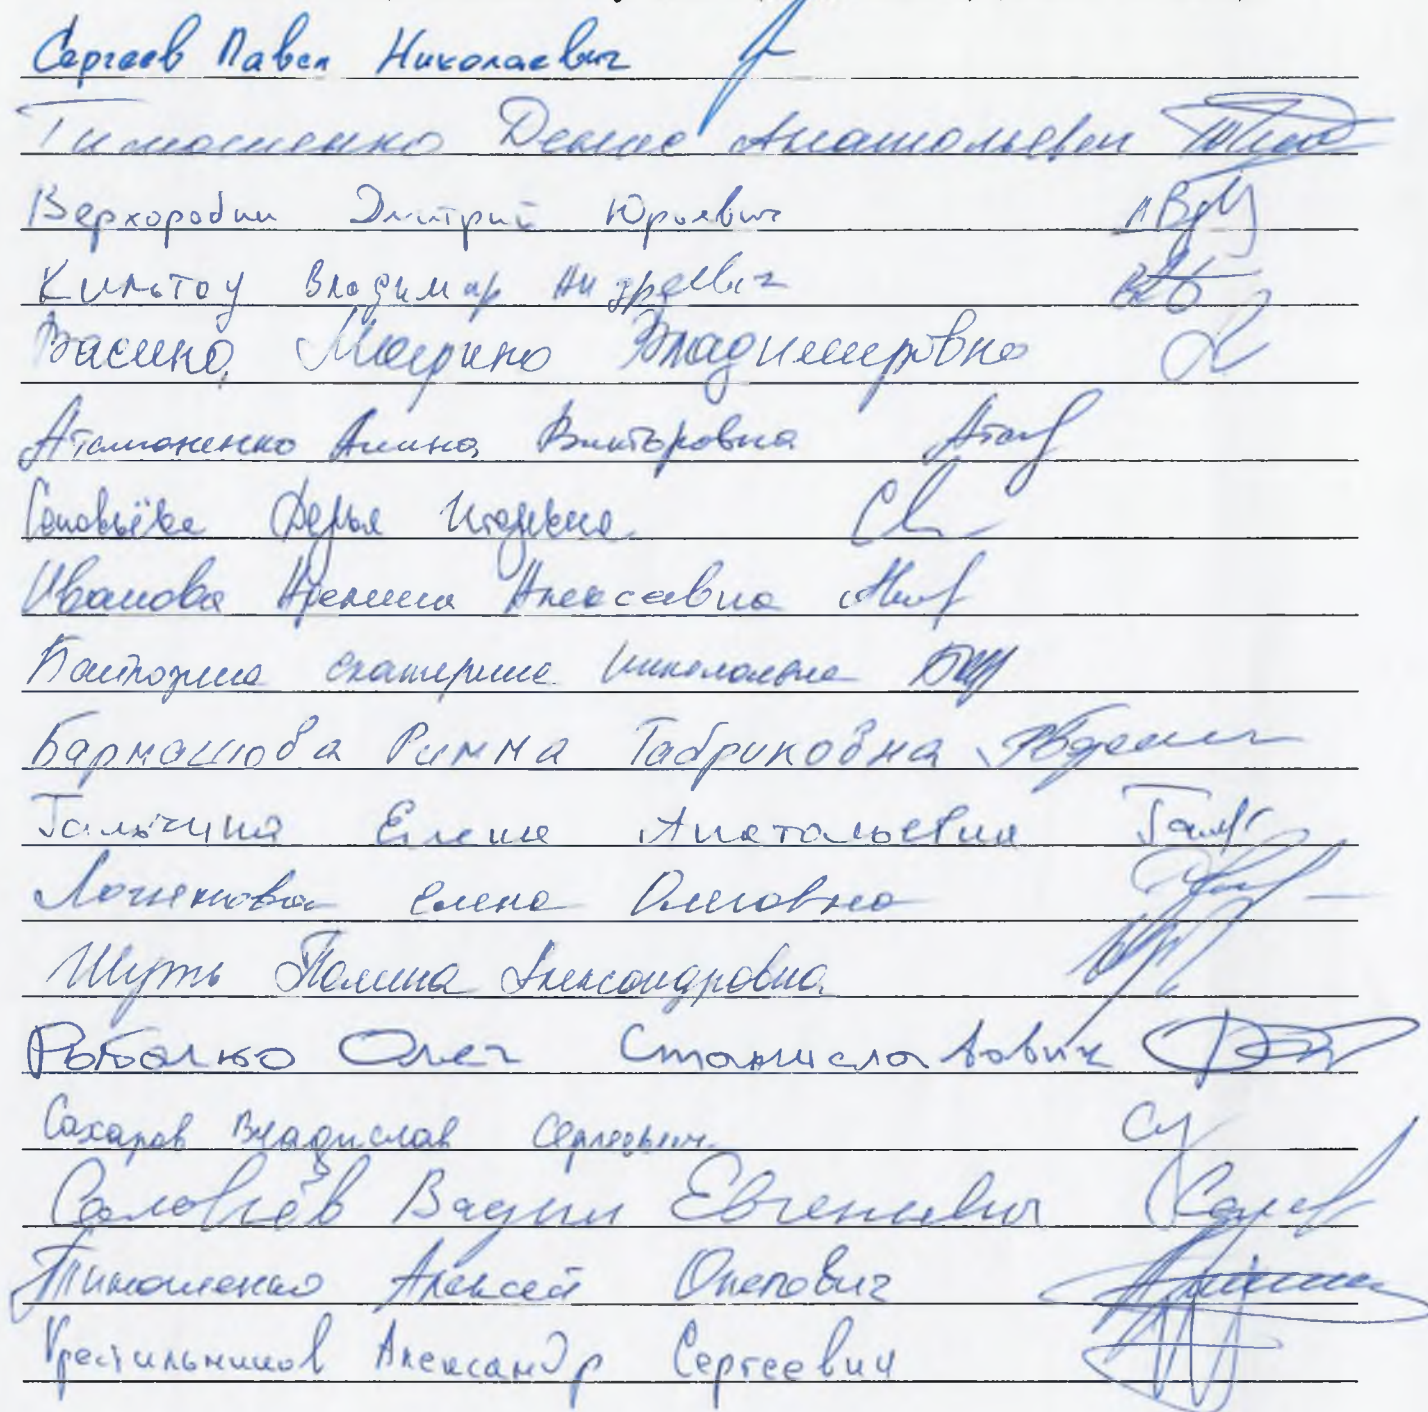 Сергеев Павел Николаевич
Тимошенко Денис Анатольевич
Верхородин Дмитрий Юрьевич
Владимир Андреевич
Васина Марина Владимировна
Атаманенко Алина Викторовна
Соловьёва Дарья Игоревна
Иванова Алексеевна
Екатерина Николаевна
Бармашова Римма Габриковна
Галыгина Елена Анатольевна
Елена Олеговна
Шуть Полина Александровна
Рыбалко Олег Станиславович
Сахаров Владислав Сергеевич
Соловьёв Вадим Евгеньевич
Тимошенко Алексей Олегович
Крестильников Александр Сергеевич